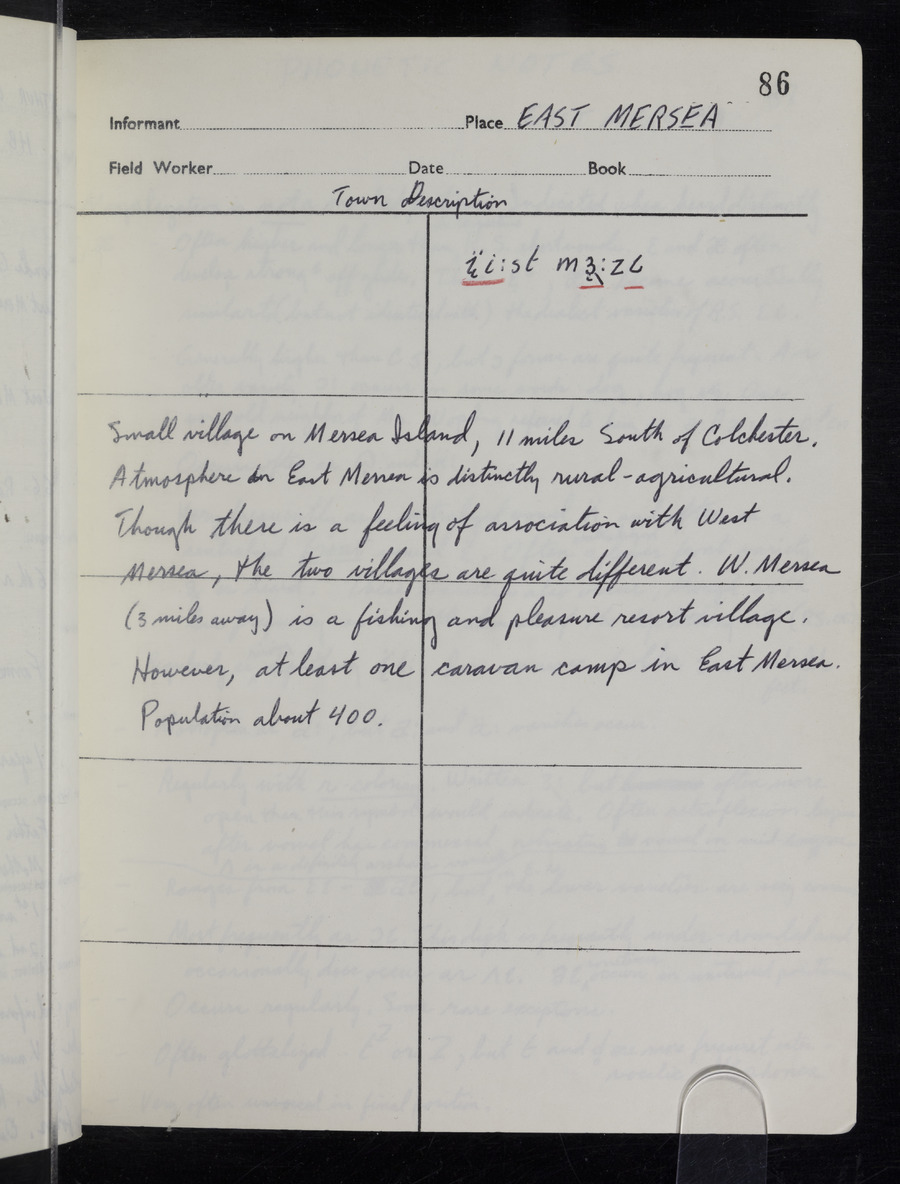 86
Informant Place EAST MERSEA
Field Worker Date Book
Town Description
i:st mɜ:zɩ
Small village on Mersea Island, 11 miles South of Colchester.
Atmosphere in East Mersea is distinctly rural-agricultural.
Though there is a feeling of association with West
Mersea, the two villages are quite different. W. Mersea
(3 miles away) is a fishing and pleasure resort village.
However, at least one caravan camp in East Mersea.
Population about 400.